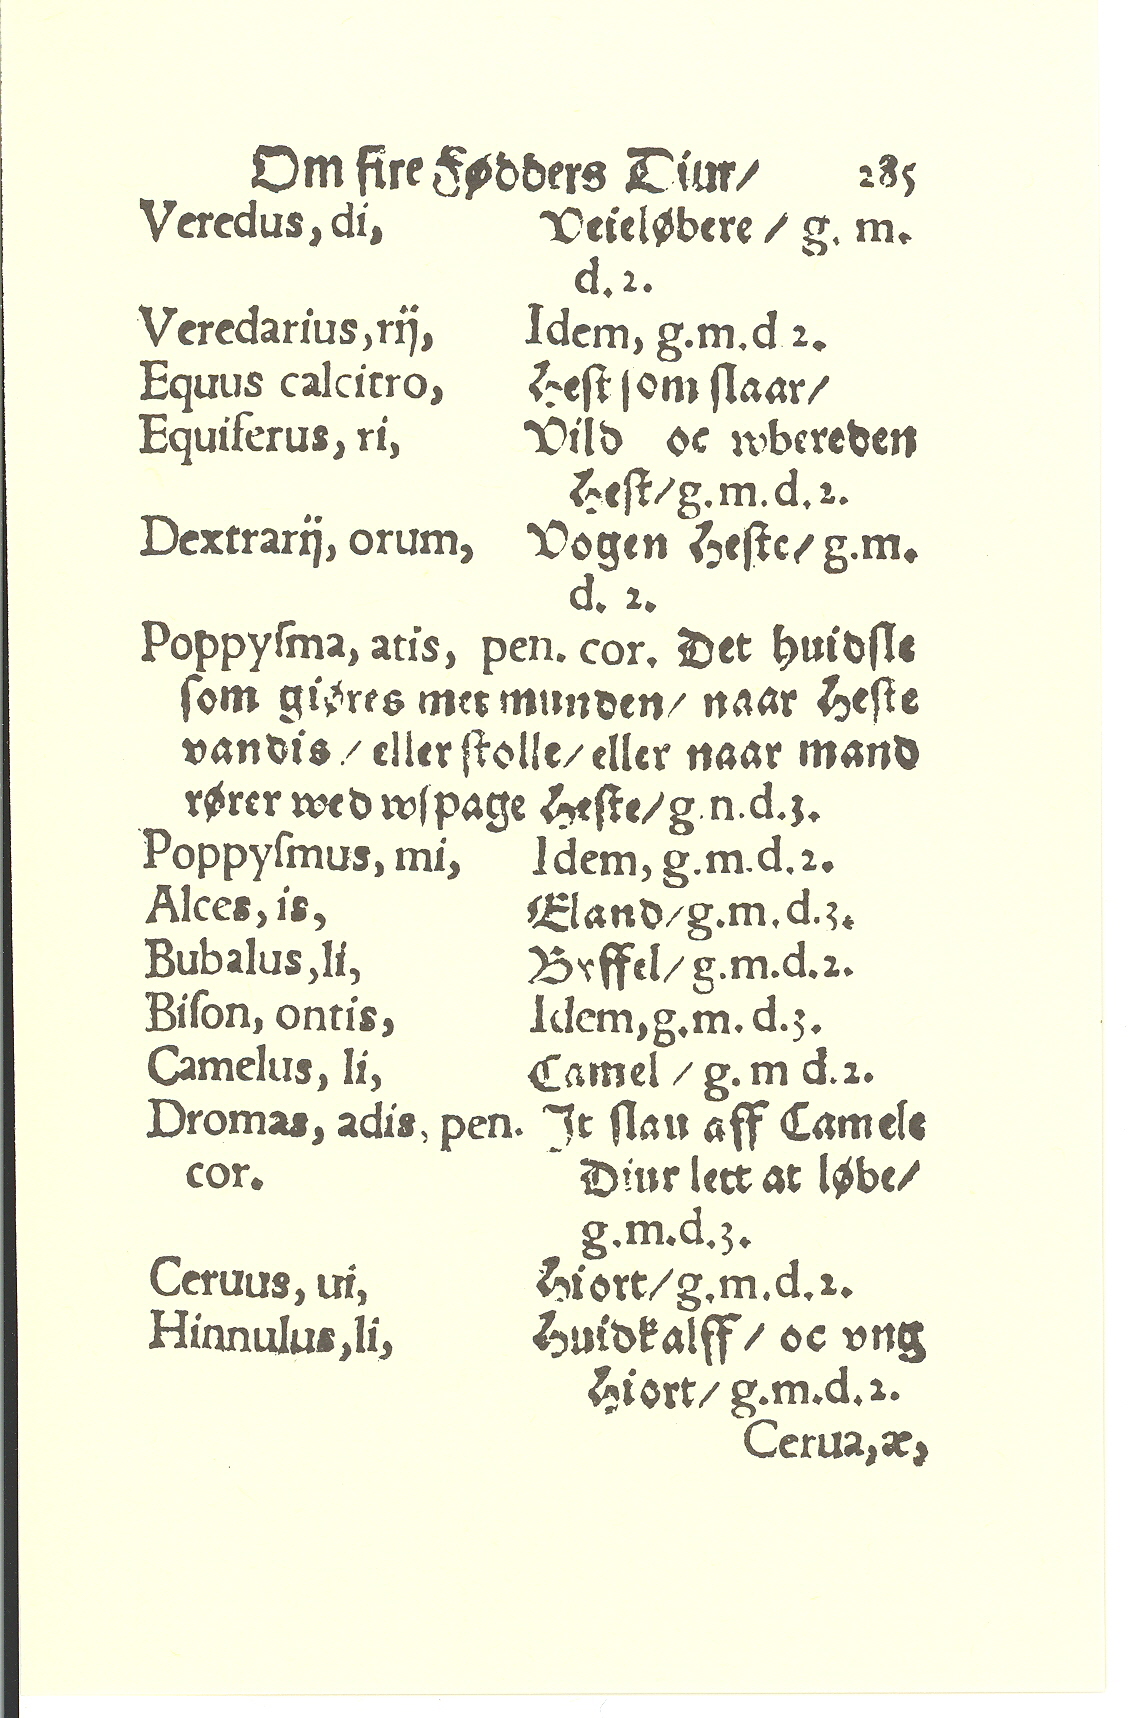 Om fire Fødders Diur/ 285
Veredus, di, Veieløbere / g. m.
d. 2.
Veredarius, rij, Idem, g.m.d 2.
Equus calcitro, Hest som slaar/
Equiferus, ri, Vild oc wbereden
Hest/ g.m.d.2.
Dextrarij, orum, Vogen Heste/ g.m.
d. 2.
Poppyſma, atis, pen. cor. Det huidſle
ſom giøres met munden/ naar Heſte
vandis / eller ſtolle/ eller naar mand
rører wed wſpage Heſte/ g.n.d.3.
Poppyſmus, mi, Idem, g.m.d.2.
Alces, is, Eland/ g.m.d.3.
Bubalus, li, Byffel/ g.m.d.2.
Biſon, ontis, Idem, g.m. d.3.
Camelus, li, Camel / g. m d.2.
Dromas, adis, pen. It slau aff Camele
cor. Diur lett at løbe/
g.m.d.3.
Ceruus, ui, Hiort/ g.m.d.2.
Hinnulus, li, Huidkalff/ oc vng
Hiort/ g.m.d.2.
Cerua, æ,